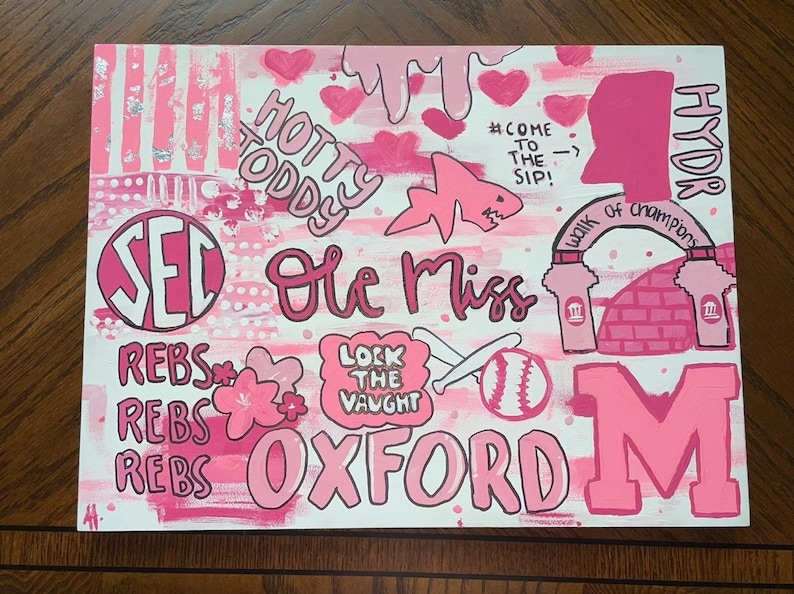 HOTTY
TODDY
#COME
TO
THE
SIP!
HYDR
Walk of Champions
SEC
Ole Miss
REBS
REBS
REBS
LOCK
THE
VAUGHT
OXFORD
M